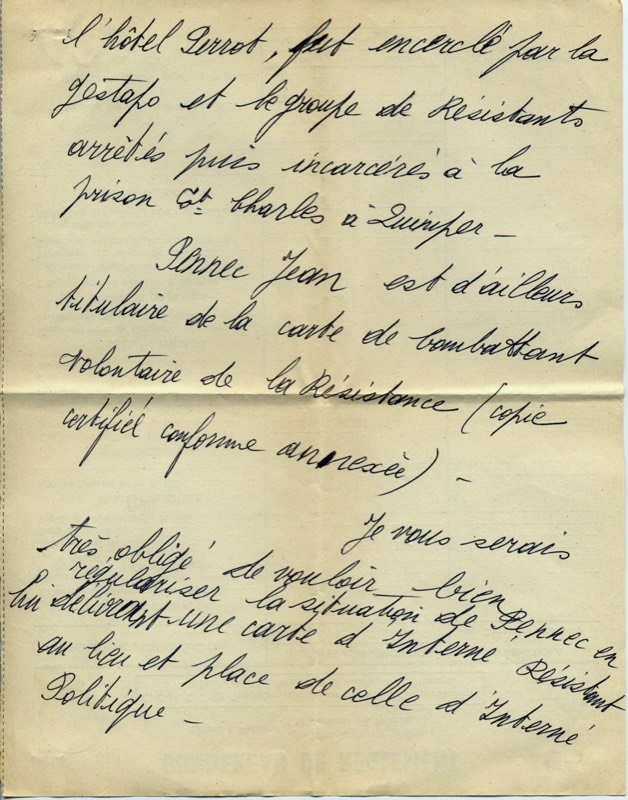 l'hôtel Perrot, fut encerclé par la
gestapo et le groupe de Résistants
arrêtés puis incarcérés à la
prison St Charles à Quimper –
Pennec Jean est d'ailleurs
titulaire de la carte de Combattant
Volontaire de la Résistance (copie
certifié conforme annexée) –
Je vous serais
très obligé de vouloir bien
régulariser la situation de Pennec en
lui délivrant une carte d'Interné Résistant
au lieu et place de celle d'Interné
Politique –